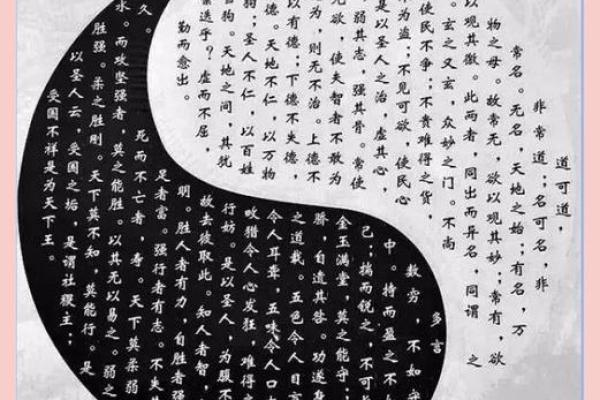 道可道，
非常道；名可名，非
常名。无名，天地之始；有名，万
物之母。故常无，欲以观其妙；常有，欲
以观其徼。此两者，同出而异名，同谓之
玄之又玄，众妙之门。不尚
使民不争；不贵难得之货，
为盗；不见可欲，使民心
是以圣人之治，虚其心，
其志，强其骨。常使
无欲，使夫智者不敢为
为，则无不治。上德不
以有德；下德不失德，
德。天地不仁，以万物
狗；圣人不仁，以百姓
狗。天地之间，其犹
龠乎？虚而不屈，
勤而愈出。
多言
数穷，不如守
中。持而盈之不
己；揣而锐之，不可
金玉满堂，莫之能守；
骄，自遗其咎。功遂
之道哉。五色令人目
令人耳聋，五味令人口
畋猎令人心发狂，难得
行妨。是以圣人，为腹不
故去彼取此。知人者智，
明。胜人者有力，自胜者强
足者富。强行者有志。不失
久。死而不亡者，寿。天下莫柔弱
水。而攻坚强者，莫之能胜。以其无以易之。弱之
胜强。柔之胜刚。天下莫不知，莫能行。是
以圣人云，受国之垢，是谓社稷主；
受国不祥是为天下王。